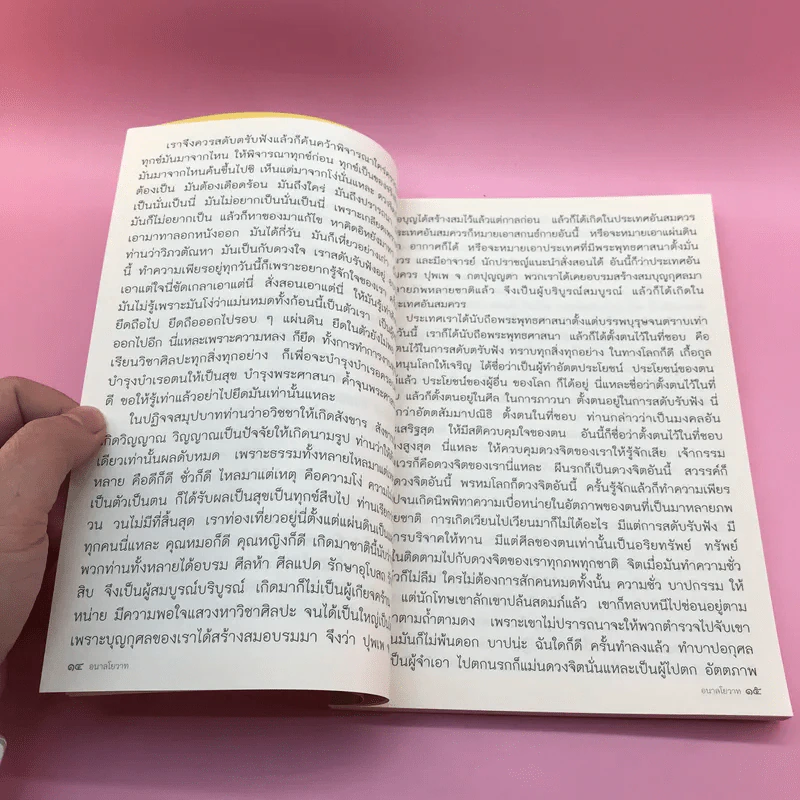 เราจึงควรสดับตรับฟังแล้วก็ค้นคว้าพิจารณาใคร่ควร
ทุกข์มันมาจากไหน ให้พิจารณาทุกข์ก่อน ทุกข์เป็นของ
มันมาจากไหนค้นขึ้นไปซิ เห็นแต่มาจากโง่นั่นแหละ
ต้องเป็น มันต้องเดือดร้อน มันถึงใคร่ มันถึงปรารถนา
เป็นนั่นเป็นนี่ มันไม่อยากเป็นนั่นเป็นนี่ เพราะเกลียด
มันก็ไม่อยากเป็น แล้วก็หาของมาแก้ไข หาติดอิหยัง
เอามาทาลอกหนังออก มันได้กี่วัน มันก็เหี่ยวอย่างเก่า
ท่านว่าวิภวตัณหา มันเป็นกับดวงใจ เราสดับรับฟังอยู่
นี้ ทำความเพียรอยู่ทุกวันนี้ก็เพราะอยากรู้จักใจของเรา
เอาแต่ใจนี่ขัดเกลาเอาแต่นี่ สั่งสอนเอาแต่นี่ ให้มันรู้เท่า
มันไม่รู้เพราะมันโง่ว่าแม่นหมดทั้งก้อนนี้เป็นตัวเรา
ยึดถือไป ยึดถือออกไปรอบ ๆ แผ่นดิน ยึดในตัวยังไม่พอ
ออกไปอีก นี่แหละเพราะความหลง ก็ยึด ทั้งการทำการงาน
เรียนวิชาศิลปะทุกสิ่งทุกอย่าง ก็เพื่อจะบำรุงบำเรอ
บำรุงบำเรอตนให้เป็นสุข บำรุงพระศาสนา ค้ำจุนพระศาสนา
ดี ขอให้รู้เท่าแล้วอย่าไปยึดมันเท่านั้นแหละ
ในปฏิจจสมุปบาทท่านว่าอวิชชาให้เกิดสังขาร
เกิดวิญญาณ วิญญาณเป็นปัจจัยให้เกิดนามรูป ท่านว่าได้
เดียวเท่านั้นผลดับหมด เพราะธรรมทั้งหลายไหลมาแต่
หลาย คือดีก็ดี ชั่วก็ดี ไหลมาแต่เหตุ คือความโง่
เป็นตัวเป็นตน ก็ได้รับผลเป็นสุขเป็นทุกข์สืบไป ท่านเรียก
วน วนไม่มีที่สิ้นสุด เราท่องเที่ยวอยู่นี่ตั้งแต่แผ่นดินเป็น
ทุกคนนี่แหละ คุณหมอก็ดี คุณหญิงก็ดี เกิดมาชาตินี้
พวกท่านทั้งหลายได้อบรม ศีลห้า ศีลแปด รักษาอุโบสถ
สิบ จึงเป็นผู้สมบูรณ์บริบูรณ์ เกิดมาก็ไม่เป็นผู้เกียจคร้าน
หน่าย มีความพอใจแสวงหาวิชาศิลปะ จนได้เป็นใหญ่เป็น
เพราะบุญกุศลของเราได้สร้างสมอบรมมา จึงว่า ปุพเพ จ
๑๔ อนาลโยวาท
บุญได้สร้างสมไว้แล้วแต่กาลก่อน แล้วก็ได้เกิดในประเทศอันสมควร
ประเทศอันสมควรก็หมายเอาสกนธ์กายอันนี้ หรือจะหมายเอาแผ่นดิน
อากาศก็ได้ หรือจะหมายเอาประเทศที่มีพระพุทธศาสนาตั้งมั่น
และมีอาจารย์ นักปราชญ์แนะนำสั่งสอนได้ อันนี้ก็ว่าประเทศอัน
ควร ปุพเพ จ กตปุญญตา พวกเราได้เคยอบรมสร้างสมบุญกุศลมา
หลายภพหลายชาติแล้ว จึงเป็นผู้บริบูรณ์สมบูรณ์ แล้วก็ได้เกิดใน
ประเทศอันสมควร
ประเทศเราได้นับถือพระพุทธศาสนาตั้งแต่บรรพบุรุษจนตราบเท่า
วันนี้ เราก็ได้นับถือพระพุทธศาสนามา แล้วก็ได้ตั้งตนไว้ในที่ชอบ คือ
ตนไว้ในการสดับรับฟัง ทราบทุกสิ่งทุกอย่าง ในทางโลกก็ดี เกื้อกูล
หนุนโลกให้เจริญ ได้ชื่อว่าเป็นผู้ทำอัตตประโยชน์ ประโยชน์ของตน
แล้ว ประโยชน์ของผู้อื่น ของโลก ก็ได้อยู่ นี่แหละชื่อว่าตั้งตนไว้ในที่
แล้วก็ตั้งตนอยู่ในศีล ในการภาวนา ตั้งตนอยู่ในการสดับรับฟัง นี่
กว่าอัตตสัมมาปณิธิ ตั้งตนในที่ชอบ ท่านกล่าวว่าเป็นมงคลอัน
เสริฐสุด ให้มีสติควบคุมใจของตน อันนี้ก็ชื่อว่าตั้งตนไว้ในที่ชอบ
สูงสุด นี่แหละ ให้ควบคุมดวงจิตของเราให้รู้จักเสีย เจ้ากรรม
เวรก็คือดวงจิตของเรานี่แหละ ผืนรกก็เป็นดวงจิตอันนี้ สวรรค์ก็
ดวงจิตอันนี้ พรหมโลกก็ดวงจิตอันนี้ ครั้นรู้จักแล้วก็ทำความเพียร
ไปจนเกิดนิพพิทาความเบื่อหน่ายในอัตภาพของตนที่เป็นมาหลายภพ
ชาติ การเกิดเวียนไปเวียนมาก็ไม่ได้อะไร มีแต่การสดับรับฟัง มี
การบริจาคให้ทาน มีแต่ศีลของตนเท่านั้นเป็นอริยทรัพย์ ทรัพย์
ในติดตามไปกับดวงจิตของเราทุกภพทุกชาติ จิตเมื่อมันทำความชั่ว
ก็ไม่ลืม ใครไม่ต้องการสักคนหมดทั้งนั้น ความชั่ว บาปกรรม ให้
แต่นักโทษเขาลักเขาปล้นสดมภ์แล้ว เขาก็หลบหนีไปซ่อนอยู่ตาม
ตามถ้ำตามดง เพราะเขาไม่ปรารถนาจะให้พวกตำรวจไปจับเขา
มันก็ไม่พ้นดอก บาปน่ะ ฉันใดก็ดี ครั้นทำลงแล้ว ทำบาปอกุศล
เป็นผู้จำเอา ไปตกนรกก็แม่นดวงจิตนั่นแหละเป็นผู้ไปตก อัตตภาพ
อนาลโยวาท ๑๕